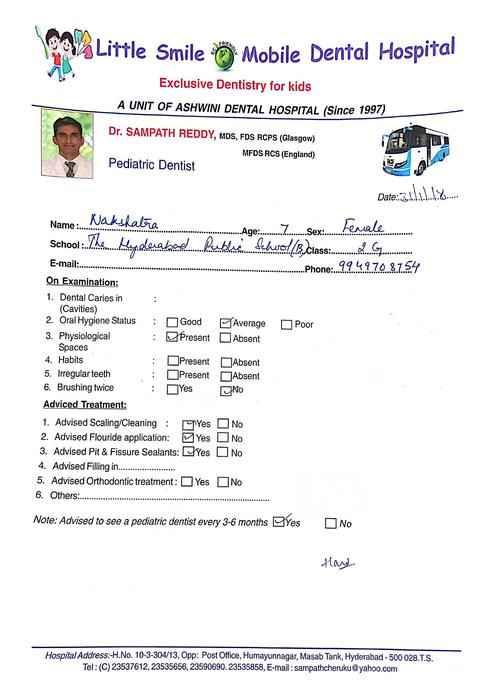 Little Smile Mobile Dental Hospital
Exclusive Dentistry for kids
A UNIT OF ASHWINI DENTAL HOSPITAL (Since 1997)
Dr. SAMPATH REDDY, MDS, FDS RCPS (Glasgow)
MFDS RCS (England)
Pediatric Dentist
Date: 31/1/18
Name: Nakshatra Age: 7 Sex: Female
School: The Hyderabad Public School (B) Class: 2 G
E-mail: Phone: 9949708754
On Examination:
1. Dental Caries in :
(Cavities)
2. Oral Hygiene Status : Good Average Poor
3. Physiological : Present Absent
Spaces
4. Habits : Present Absent
5. Irregular teeth : Present Absent
6. Brushing twice : Yes No
Adviced Treatment:
1. Advised Scaling/Cleaning : Yes No
2. Advised Flouride application: Yes No
3. Advised Pit & Fissure Sealants: Yes No
4. Advised Filling in
5. Advised Orthodontic treatment : Yes No
6. Others:
Note: Advised to see a pediatric dentist every 3-6 months Yes No
Hospital Address:-H.No. 10-3-304/13, Opp: Post Office, Humayunnagar, Masab Tank, Hyderabad - 500 028.T.S.
Tel : (C) 23537612, 23535656, 23590690. 23535858, E-mail : sampathcheruku@yahoo.com